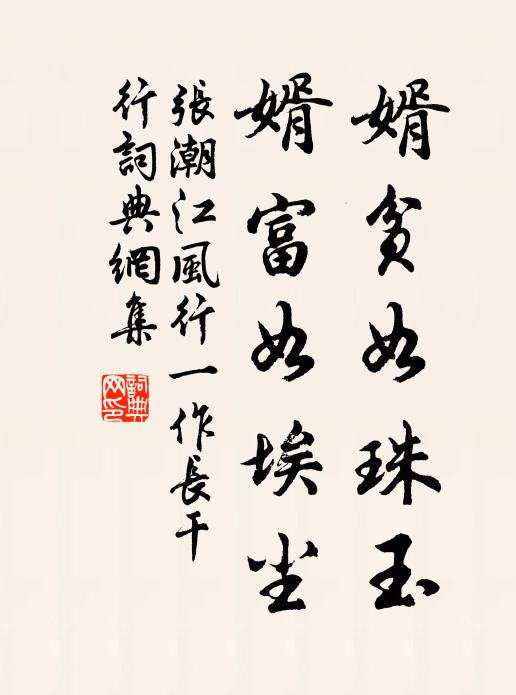 婿貧如珠玉
婿富如埃尘
張潮江風行一作長干
行詞典網集
詞典
网印